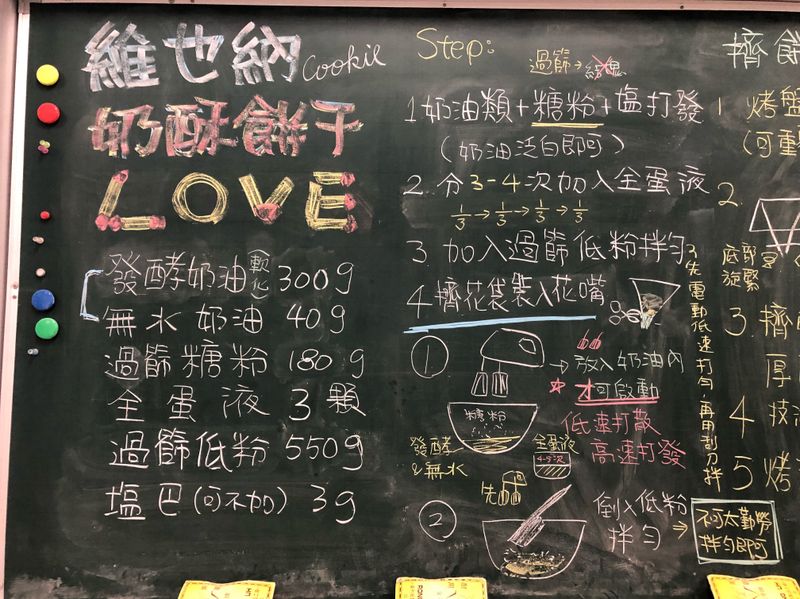 維也納 Cookie
奶酥餅干
LOVE
發酵奶油(軟化) 300g
無水奶油 40g
過篩糖粉 180g
全蛋液 3顆
過篩低粉 550g
塩巴(可不加) 3g
Step:
過篩→結塊
1 奶油類+糖粉+塩打發
(奶油泛白即可)
2. 分3-4次加入全蛋液
1/3→1/3→1/3→1/3
3 加入過篩低粉拌勻
4 擠花袋裝入花嘴
①
→放入奶油內
才可啟動
低速打散
高速打發
糖粉
發酵
&無水
全蛋液
4-5次
②
先
倒入低粉
拌勻 ⇒
不可太勤勞
拌勻即可
先電動低速打勻.再用刮刀拌
擠餅
1 烤盤
(可重
2.
底部
旋緊
3. 擠
厚
4 技
5 烤